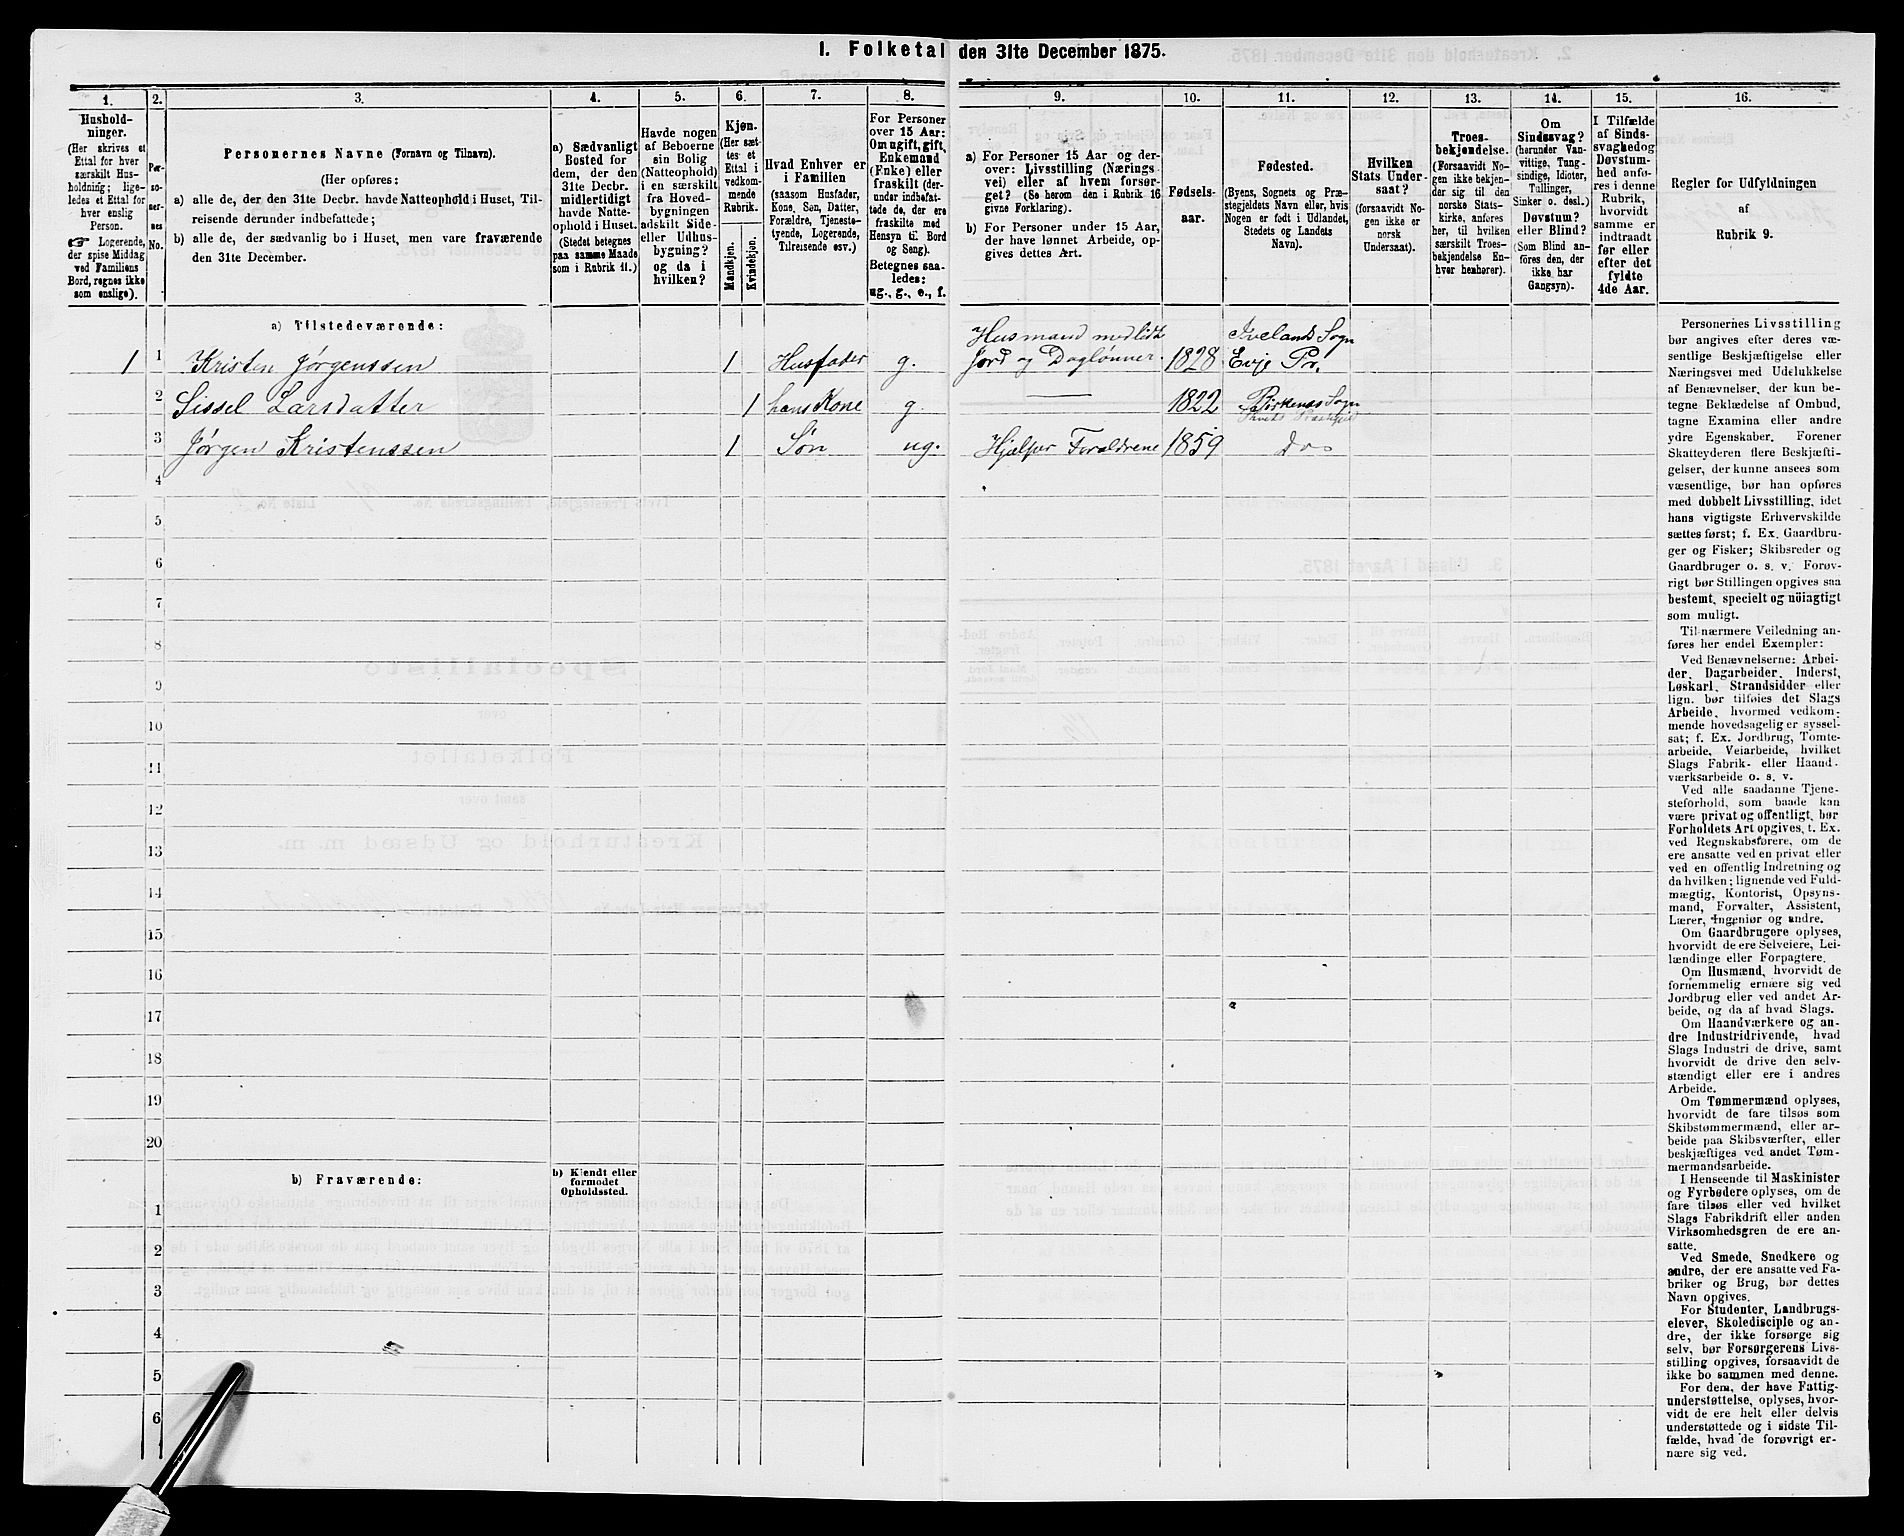 1. Folketal den 31te December 1875.
1.
2.
3.
4.
5.
6.
7.
8.
9.
10.
11.
12.
13.
14.
15.
16.
Hushold-
ninger.
(Her skrives et
Ettal for hver
særskilt Hus-
holdning; lige-
ledes et Ettal for
hver enslig
Person.
☞ Logerende,
der spise Middag
ved Familiens
Bord, regnes ikke
som enslige).
Per-
so-
ner-
nes
No.
Personernes Navne (Fornavn og Tilnavn).
(Her opføres:
a) alle de, der den 31te Decbr. havde Natteophold i Huset, Til-
reisende derunder indbefattede;
b) alle de, der sædvanlig bo i Huset, men vare fraværende
den 31te December.
a) Sædvanligt
Bosted for
dem, der den
31te Decbr.
midlertidigt
havde Natte-
ophold i Huset.
(Stedet betegnes
paa samme Maade
som i Rubrik 11.)
Havde nogen
af Beboerne
sin Bolig
(Natteophold)
i en særskilt
fra Hoved-
bygningen
adskilt Side-
eller Udhus-
bygning?
og da i
hvilken?
Kjøn.
(Her sæt-
tes et
Ettal i
vedkom-
mende
Rubrik.
Mandkjøn.
Kvindekjøn.
Hvad Enhver er
i Familien
(saasom Husfader,
Kone, Søn, Datter,
Forældre, Tjeneste-
tyende, Logerende,
Tilreisende osv.)
For Personer
over 15 Aar:
Om ugift, gift,
Enkemand
(Enke) eller
fraskilt (der-
under indbefat-
tede de, der ere
fraskilte med
Hensyn til Bord
og Seng).
Betegnes saa-
ledes:
ug., g., e., f.
a) For Personer 15 Aar og der-
over: Livsstilling (Nærings-
vei) eller af hvem forsør-
get? (Se herom den i Rubrik 16
givne Forklaring).
b) For Personer under 15 Aar,
der have lønnet Arbeide, op-
gives dettes Art.
Fødsels-
aar.
Fødested.
(Byens, Sognets og Præ-
stegjeldets Navn eller, hvis
Nogen er født i Udlandet,
Stedets og Landets
Navn).
Hvilken
Stats Under-
saat?
(forsaavidt No-
gen ikke er
norsk
Undersaat).
Troes-
bekjendelse.
(Forsaavidt No-
gen ikke bekjen-
der sig til den
norske Stats-
kirke, anføres
her, til hvilken
særskilt Troes-
bekjendelse En-
hver henhører).
Om
Sindssvag?
(herunder Van-
vittige, Tung-
sindige, Idioter,
Tullinger,
Sinker o. desl.)
Døvstum?
eller Blind?
(Som Blind an-
føres den, der
ikke har
Gangsyn).
I Tilfælde
af Sinds-
svaghed og
Døvstum-
hed anfø-
res i denne
Rubrik,
hvorvidt
samme er
indtraadt
før eller
efter det
fyldte
4de Aar.
Regler for Udfyldningen
af
Rubrik 9.
a) Tilstedeværende:
1 1 Kristen Jørgenssen 1 Husfader g. Husmand med lidt
Jord og Daglønner 1828 Ivelands Sogn
Evje Pr.
2 Sissel Larsdatter 1 hans Kone g. —— 1822 Birkenes Sogn
Tveits Præstegjeld
3 Jørgen Kristenssen 1 Søn ug. Hjælper Forældrene 1859 Do
4
5
6
7
8
9
10
11
12
13
14
15
16
17
18
19
20
b) Fraværende:
b) Kjendt eller
formodet
Opholdssted.
1
2
3
4
5
6
Personernes Livsstilling
bør angives efter deres væ-
sentlige Beskjæftigelse eller
Næringsvei med Udelukkelse
af Benævnelser, der kun be-
tegne Beklædelse af Ombud,
tagne Examina eller andre
ydre Egenskaber. Forener
Skatteyderen flere Beskjæfti-
gelser, der kunne ansees som
væsentlige, bør han opføres
med dobbelt Livsstilling, idet
hans vigtigste Erhvervskilde
sættes først; f. Ex. Gaardbru-
ger og Fisker; Skibsreder og
Gaardbruger o. s. v. Forøv-
rigt bør Stillingen opgives saa
bestemt, specielt og nöiagtigt
som muligt.
Til nærmere Veiledning an-
føres her endel Exempler:
Ved Benævnelserne: Arbei-
der, Dagarbeider, Inderst,
Løskarl, Strandsidder eller
lign. bør tilføies det Slags
Arbeide, hvormed vedkom-
mende hovedsagelig er syssel-
sat; f. Ex. Jordbrug, Tomte-
arbeide, Veiarbeide, hvilket
Slags Fabrik- eller Haand-
værksarbeide o. s. v.
Ved alle saadanne Tjene-
steforhold, som baade kan
være privat og offentligt, bør
Forholdets Art opgives, t. Ex.
ved Regnskabsførere, om de
ere ansatte ved en privat eller
ved en offentlig Indretning og
da hvilken; lignende ved Fuld-
mægtig, Kontorist, Opsyns-
mand, Forvalter, Assistent,
Lærer, Ingeniør og andre.
Om Gaardbrugere oplyses,
hvorvidt de ere Selveiere, Lei-
lændinge eller Forpagtere.
Om Husmænd, hvorvidt de
fornemmelig ernære sig ved
Jordbrug eller ved andet Ar-
beide, og da af hvad Slags.
Om Haandværkere og an-
dre Industridrivende, hvad
Slags Industri de drive, samt
hvorvidt de drive den selv-
stændigt eller ere i andres
Arbeide.
Om Tømmermænd oplyses,
hvorvidt de fare tilsøs som
Skibstømmermænd, eller ar-
beide paa Skibsværfter, eller
beskjæftiges ved andet Tøm-
mermandsarbeide.
I Henseende til Maskinister
og Fyrbødere oplyses, om de
fare tilsøs eller ved hvilket
Slags Fabrikdrift eller anden
Virksomhedsgren de ere an-
satte.
Ved Smede, Snedkere og
andre, der ere ansatte ved Fa-
briker og Brug, bør dettes
Navn opgives.
For Studenter, Landbrugs-
elever, Skoledisciple og an-
dre, der ikke forsørge sig
selv, bør Forsørgerens Livs-
stilling opgives, forsaavidt de
ikke bo sammen med denne.
For dem, der have Fattig-
understøttelse, oplyses, hvor-
vidt de ere helt eller delvis
understøttede og i sidste Til-
fælde, hvad de forøvrigt er-
nære sig ved.